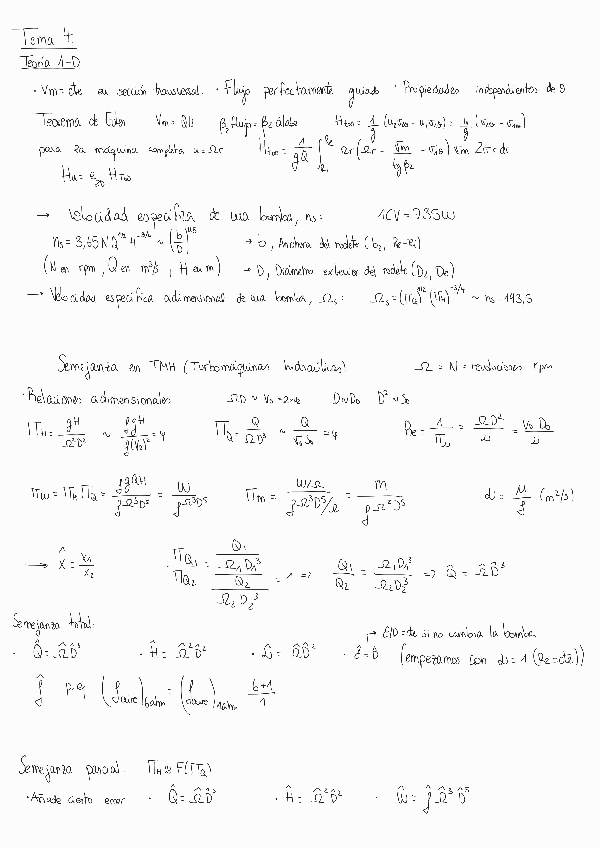 Tema 4:
Teoría 1-D
· Vm = cte en sección transversal. · Flujo perfectamente guiado · Propiedades independientes de θ
Teorema de Euler Vm = Q/S β₂ flujo = β₂ álabe H_t∞ = 1/g (u₂v₂θ - u₁v₁θ) = u/g (v₂θ - v₁θ)
para la máquina completa u = Ωr H_t∞ = 1/(gQ) ∫ Ωr (Ωr - Vm/tgβ₂ - v₁θ) Vm 2πr dr
Hu = e_∞ H_t∞
→ Velocidad específica de una bomba, ns: 1CV = 735W
ns = 3,65 N Q^1/2 H^-3/4 ~ (b/D)^0.5 → b, Anchura del rodete (b₂, Re-Ri)
(N en rpm, Q en m³/s, H en m) → D, Diámetro exterior del rodete (D₂, D₀)
→ Velocidad específica adimensional de una bomba, Ωs: Ωs = (ΠQ)^1/2 (ΠH)^-3/4 ~ ns · 193,5
Semejanza en TMH (Turbomáquinas hidráulicas) Ω = N = revoluciones rpm
· Relaciones adimensionales: ΩD ~ V₀ D~D₀ D² ~ S₀
ΠH = gH/(Ω²D²) ~ ΠQ = Q/(ΩD³) ~ Q/(V₀S₀) = 4 Re = 1/Πν = ΩD²/ν = V₀D₀/ν
ΠW = ΠH ΠQ = ρgQH/(ρΩ³D⁵) = W/(ρΩ³D⁵) Πm = (W/Ω)/(ρΩ³D⁵/Ω) = M/(ρΩ²D⁵) ν = μ/ρ (m²/s)
→ X̂ = X₁/X₂ · ΠQ1/ΠQ2 = (Q₁/(Ω₁D₁³))/(Q₂/(Ω₂D₂³)) = 1 => Q₁/Q₂ = Ω₁D₁³/(Ω₂D₂³) => Q̂ = Ω̂D̂³
Semejanza total:
· Q̂ = Ω̂D̂³ · Ĥ = Ω̂²D̂² · ν̂ = Ω̂D̂² · ε̂ = D̂ → ε/D = cte si no cambia la bomba
(empezamos con ν̂ = 1 (Re = cte))
ρ̂ p.ej (ρ aire)6atm = (ρ aire)1atm (6+1)/1
Semejanza parcial: ΠH ≈ F(ΠQ)
· Añade cierto error · Q̂ = Ω̂D̂³ · Ĥ = Ω̂²D̂² · Ŵ = ρ̂ Ω̂³ D̂⁵